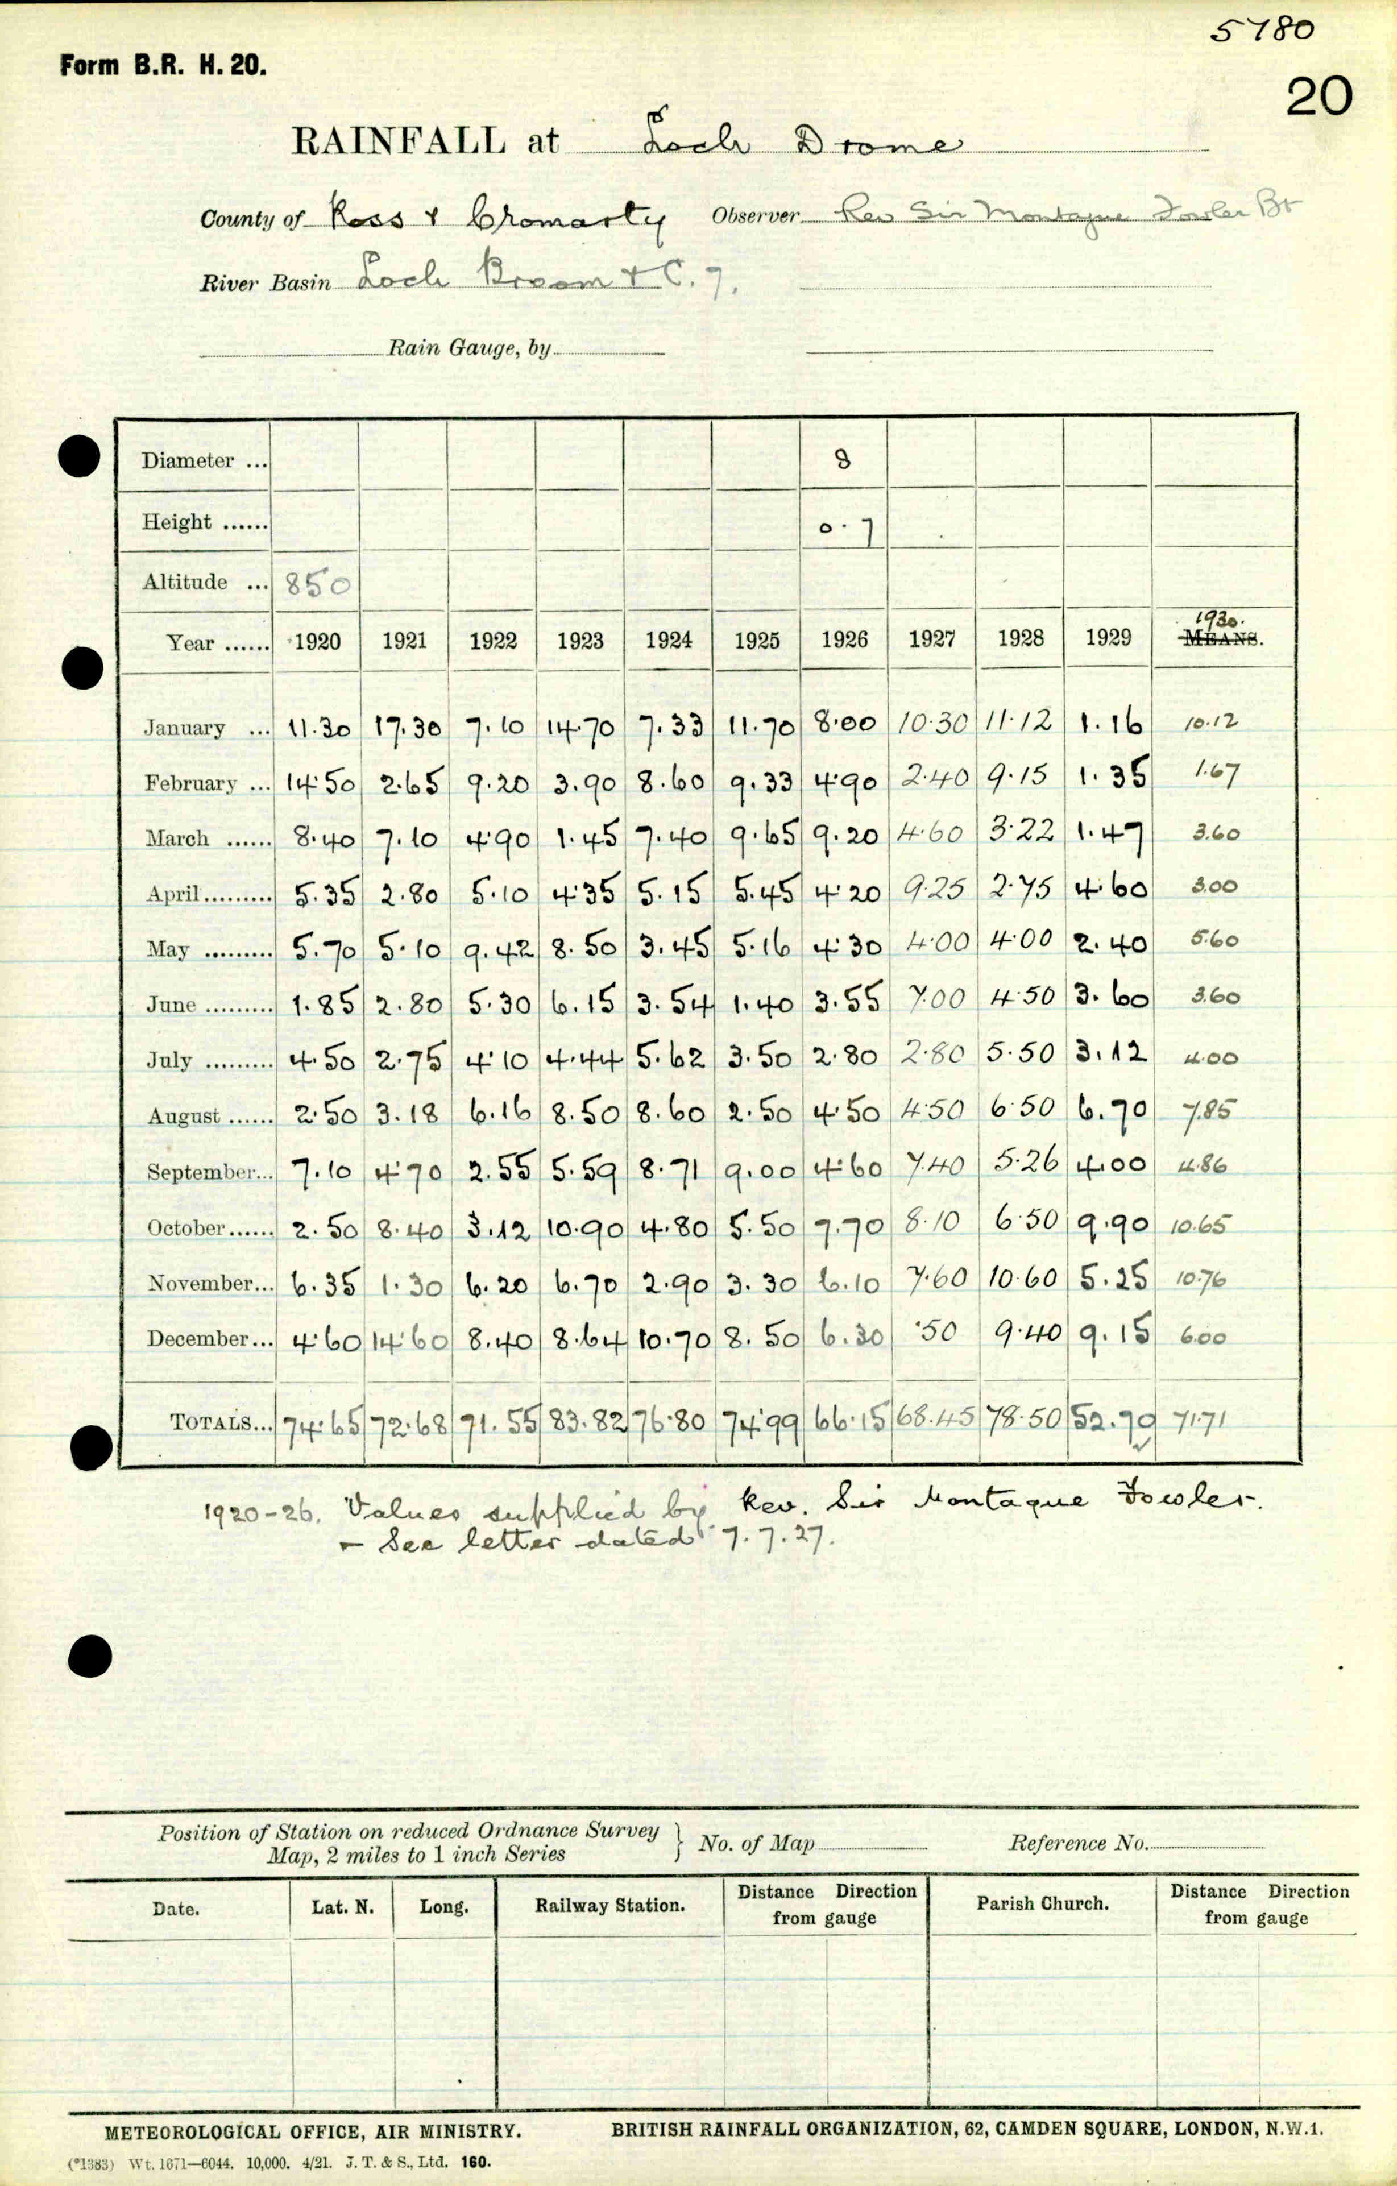 5780
Form B.R. H. 20.
20
RAINFALL at Loch Drome
County of Ross & Cromarty Observer Rev Sir Montague Fowler Bt
River Basin Loch Broom & C. 7.
Rain Gauge, by
Diameter ... 8
Height ...... 0.7
Altitude ... 850
1930.
Year ...... 1920 1921 1922 1923 1924 1925 1926 1927 1928 1929 MEANS.
January ... 11.30 17.30 7.10 14.70 7.33 11.70 8.00 10.30 11.12 1.16 10.12
February ... 14.50 2.65 9.20 3.90 8.60 9.33 4.90 2.40 9.15 1.35 1.67
March ...... 8.40 7.10 4.90 1.45 7.40 9.65 9.20 4.60 3.22 1.47 3.60
April ......... 5.35 2.80 5.10 4.35 5.15 5.45 4.20 9.25 2.75 4.60 3.00
May ......... 5.70 5.10 9.42 8.50 3.45 5.16 4.30 4.00 4.00 2.40 5.60
June ......... 1.85 2.80 5.30 6.15 3.54 1.40 3.55 7.00 4.50 3.60 3.60
July ......... 4.50 2.75 4.10 4.44 5.62 3.50 2.80 2.80 5.50 3.12 4.00
August ...... 2.50 3.18 6.16 8.50 8.60 2.50 4.50 4.50 6.50 6.70 7.85
September... 7.10 4.70 2.55 5.59 8.71 9.00 4.60 7.40 5.26 4.00 4.86
October...... 2.50 8.40 3.12 10.90 4.80 5.50 7.70 8.10 6.50 9.90 10.65
November... 6.35 1.30 6.20 6.70 2.90 3.30 6.10 7.60 10.60 5.25 10.76
December... 4.60 14.60 8.40 8.64 10.70 8.50 6.30 .50 9.40 9.15 6.00
TOTALS... 74.65 72.68 71.55 83.82 76.80 74.99 66.15 68.45 78.50 52.70 71.71
1920-26. Values supplied by Rev. Sir Montague Fowler.
- See letter dated 7.7.27.
Position of Station on reduced Ordnance Survey
Map, 2 miles to 1 inch Series } No. of Map Reference No.
Date. Lat. N. Long. Railway Station. Distance Direction from gauge Parish Church. Distance Direction from gauge
METEOROLOGICAL OFFICE, AIR MINISTRY. BRITISH RAINFALL ORGANIZATION, 62, CAMDEN SQUARE, LONDON, N.W.1.
(*1383) Wt. 1671—6044. 10,000. 4/21. J. T. & S., Ltd. 160.